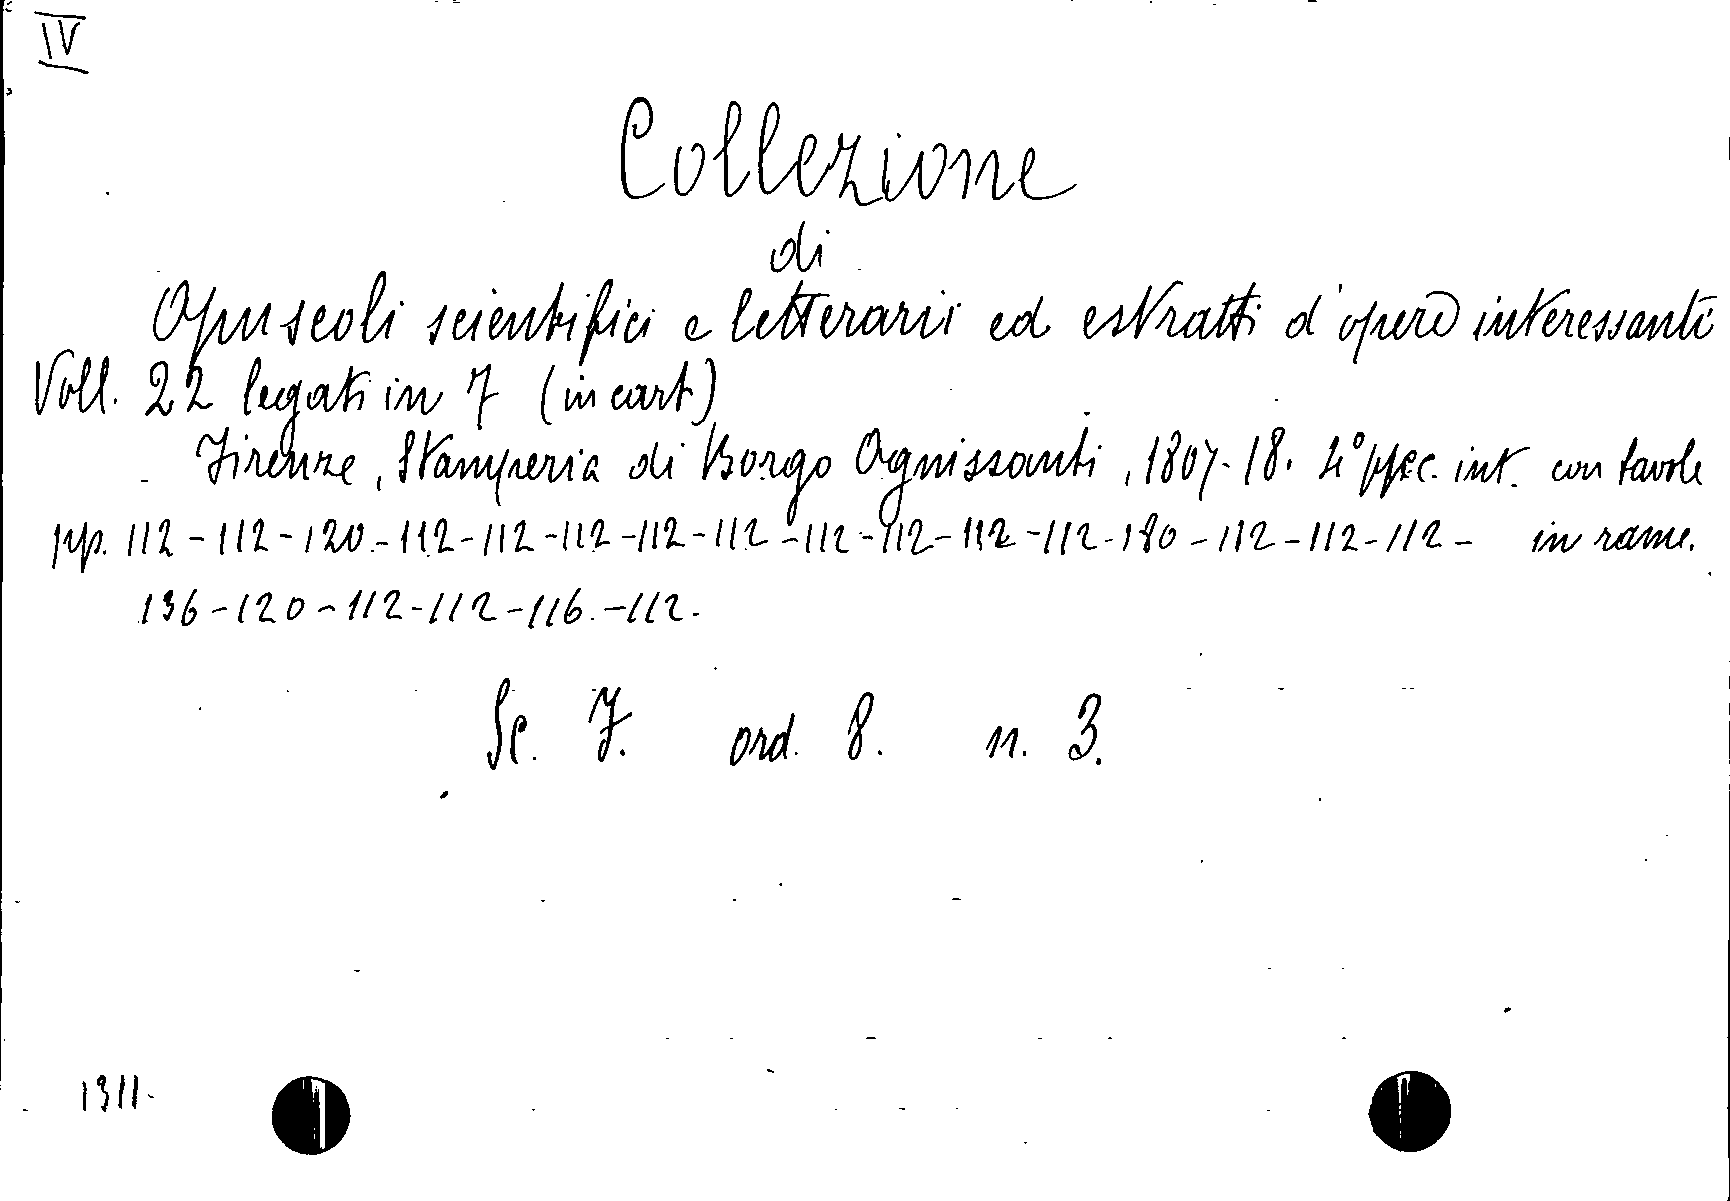 IV
Collezione
di
Opuscoli scientifici e letterarii ed estratti d'opere interessanti
Voll. 22 legati in 7 (in cart)
Firenze, Stamperia di Borgo Ognissanti, 1807-18. 4° picc. int. con tavole
pp. 112-112-120-112-112-112-112-112-112-112-112-112-180-112-112-112- in rame.
136-120-112-112-116-112.
Sc. 7. ord. 8. n. 3.
1311.